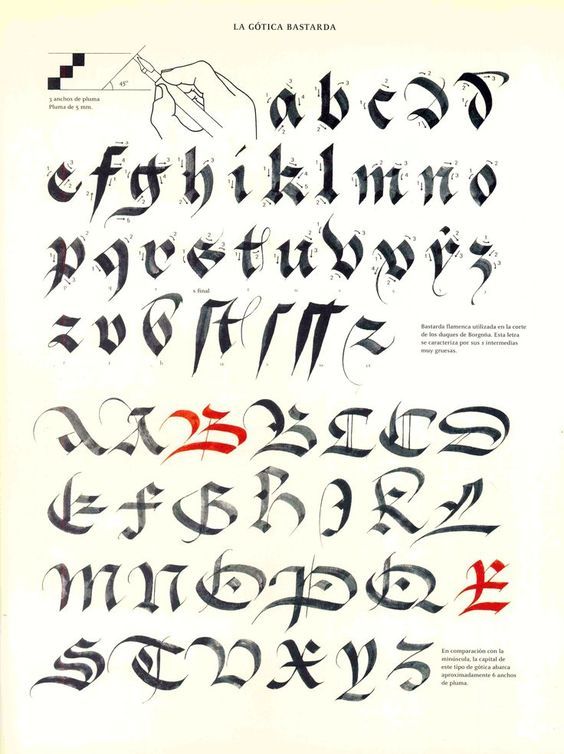 LA GÓTICA BASTARDA
45°
3 anchos de pluma
Pluma de 5 mm.
a b c d d
e f g h i k l m n o
p q r s t u v v ÿ z
s final
z v b
Bastarda flamenca utilizada en la corte
de los duques de Borgoña. Esta letra
se caracteriza por sus s intermedias
muy gruesas.
A A B B C C D
E F G H I K L
M N O P Q R
S T V X Y Z
En comparación con la
minúscula, la capital de
este tipo de gótica abarca
aproximadamente 6 anchos
de pluma.